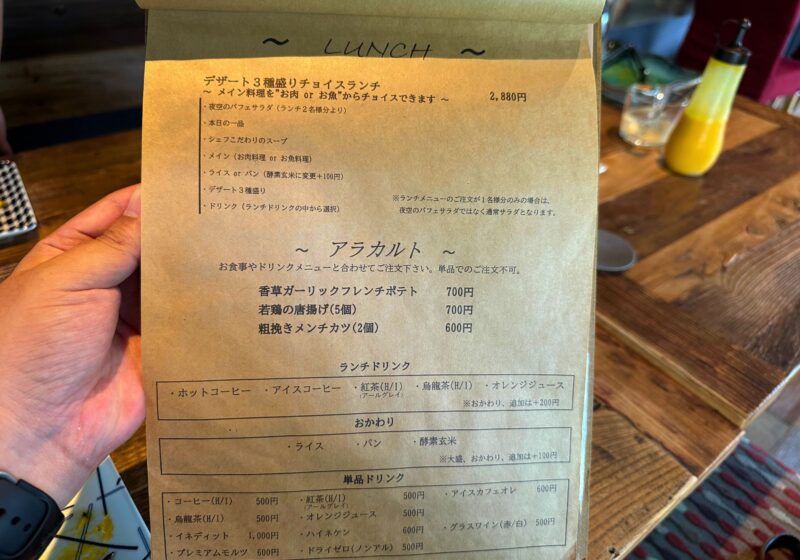 ～ LUNCH ～
デザート３種盛りチョイスランチ
～ メイン料理を"お肉 or お魚"からチョイスできます ～ 2,880円
・夜空のパフェサラダ（ランチ２名様分より）
・本日の一品
・シェフこだわりのスープ
・メイン（お肉料理 or お魚料理）
・ライス or パン（酵素玄米に変更+100円）
・デザート３種盛り
・ドリンク（ランチドリンクの中から選択）
※ランチメニューのご注文が１名様分のみの場合は、
夜空のパフェサラダではなく通常サラダとなります。
～ アラカルト ～
お食事やドリンクメニューと合わせてご注文下さい。単品でのご注文不可。
香草ガーリックフレンチポテト 700円
若鶏の唐揚げ(5個) 700円
粗挽きメンチカツ(2個) 600円
ランチドリンク
・ホットコーヒー ・アイスコーヒー ・紅茶(H/I) ・烏龍茶(H/I) ・オレンジジュース
(アールグレイ)
※おかわり、追加は+200円
おかわり
・ライス ・パン ・酵素玄米
※大盛、おかわり、追加は+100円
単品ドリンク
・コーヒー(H/I) 500円 ・紅茶(H/I) 500円 ・アイスカフェオレ 600円
(アールグレイ)
・烏龍茶(H/I) 500円 ・オレンジジュース 500円
・イネディット 1,000円 ・ハイネケン 600円 ・グラスワイン(赤/白) 500円
・プレミアムモルツ 600円 ・ドライゼロ(ノンアル) 500円